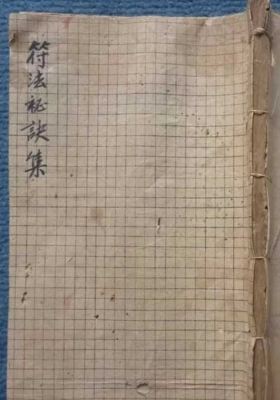 符法秘訣集